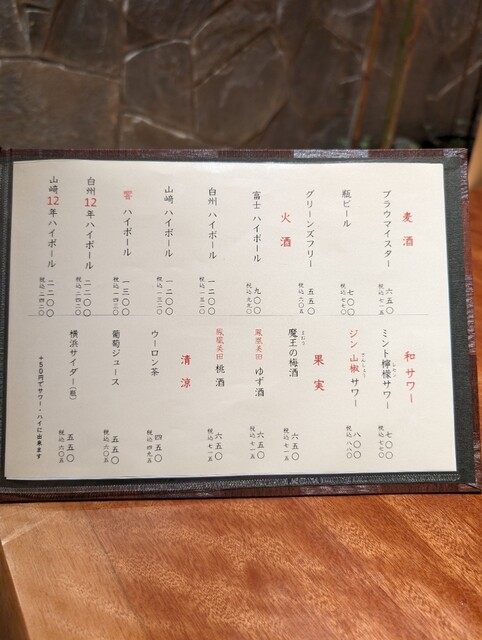 麦酒
ブラウマイスター 六五〇
税込七一五
瓶ビール 七〇〇
税込七七〇
グリーンズフリー 五五〇
税込六〇五
火酒
富士 ハイボール 九〇〇
税込九九〇
白州 ハイボール 一二〇〇
税込一三二〇
山崎 ハイボール 一二〇〇
税込一三二〇
響 ハイボール 一三〇〇
税込一四三〇
白州12年ハイボール 二二〇〇
税込二四二〇
山崎12年ハイボール 二二〇〇
税込二四二〇
和サワー
ミント檸檬サワー 七〇〇
レモン
税込七七〇
ジン山椒サワー 八〇〇
さんしょう
税込八八〇
果実
魔王の梅酒 六五〇
まおう
税込七一五
鳳凰美田 ゆず酒 六五〇
税込七一五
鳳凰美田 桃酒 六五〇
税込七一五
清涼
ウーロン茶 四五〇
税込四九五
葡萄ジュース 五五〇
税込六〇五
横浜サイダー(瓶) 五五〇
税込六〇五
+50円でサワー・ハイに出来ます